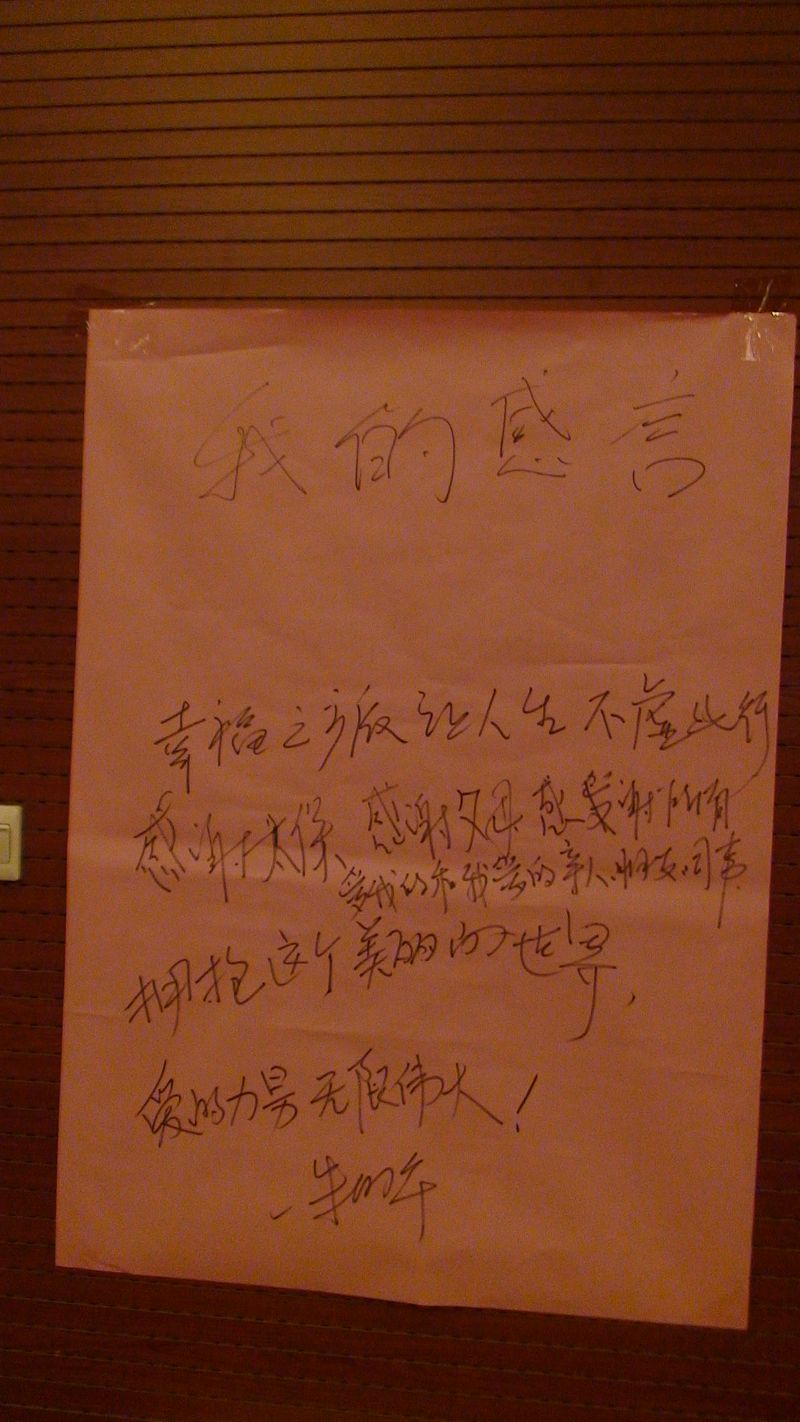 我的感言
幸福之旅让人生不虚此行
感谢太保、感谢父母、感谢所有
爱我的和我爱的亲人、朋友、同事
拥抱这个美丽的世界,
爱的力量无限伟大!